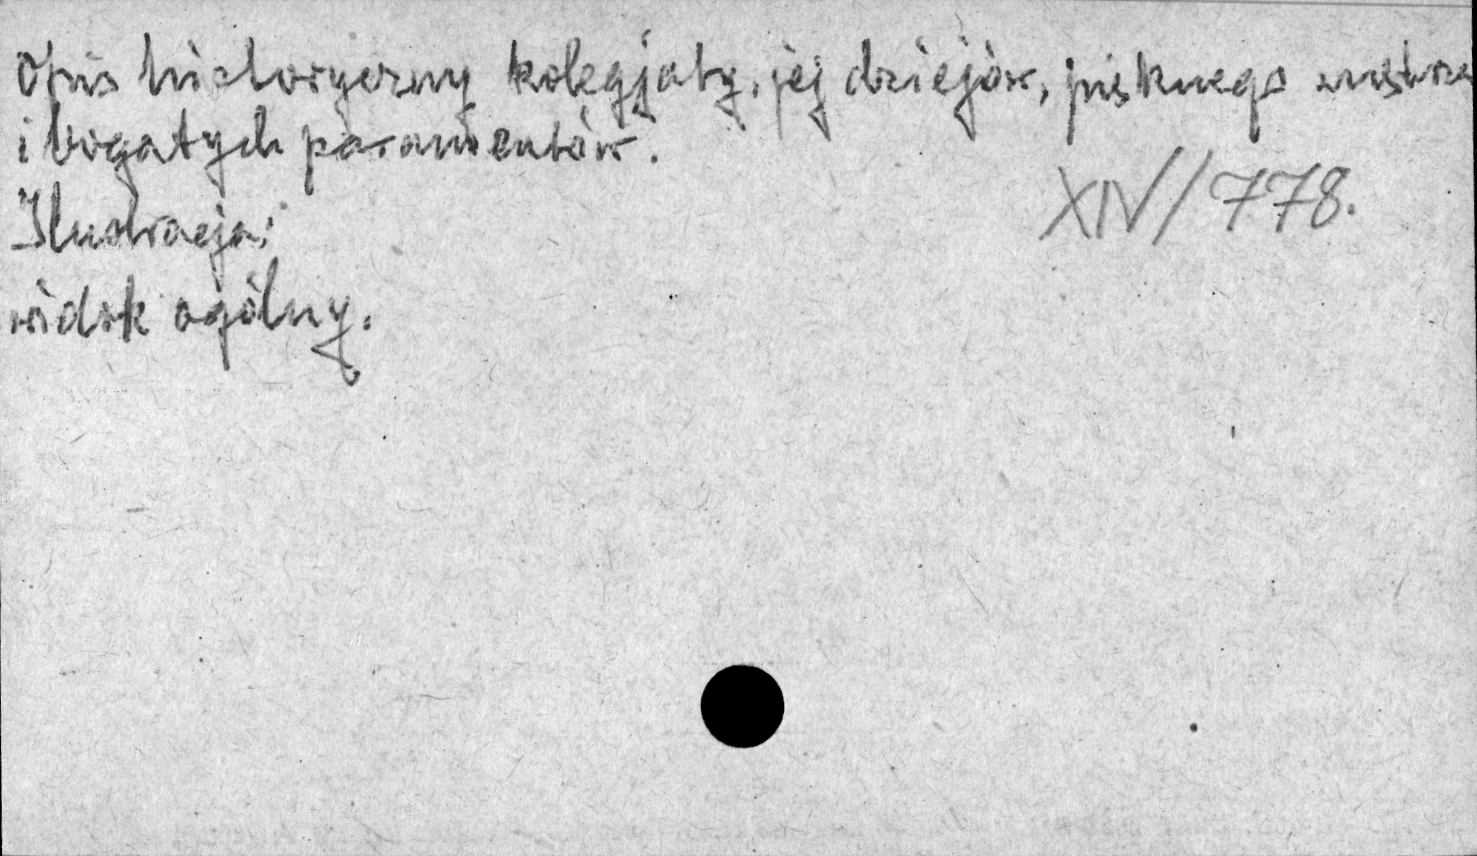 Opis historyczny kolegjaty, jej dziejów, pięknego wnętrza
i bogatych paramentów.
XIV/778.
Ilustracja:
widok ogólny.